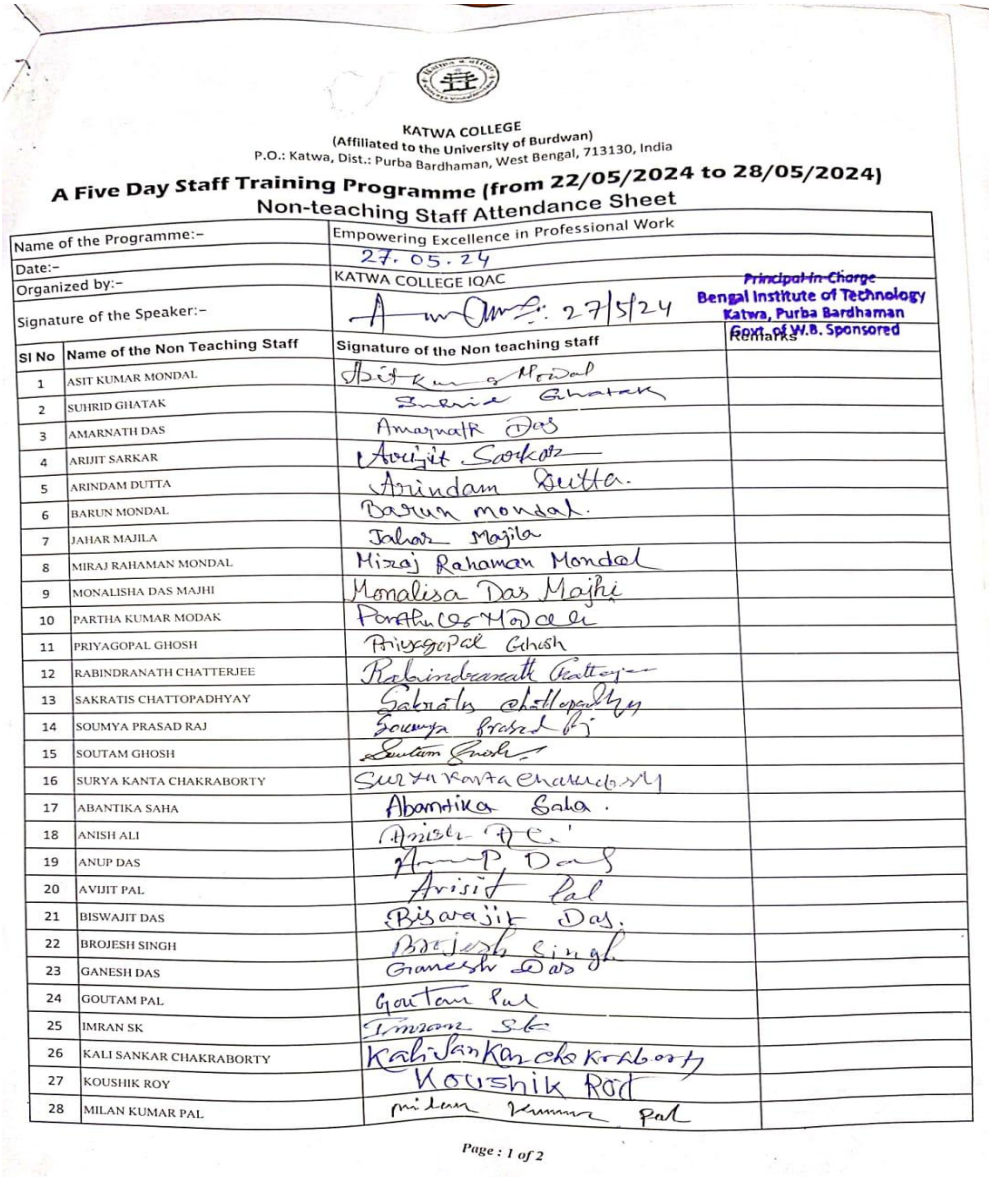 KATWA COLLEGE
(Affiliated to the University of Burdwan)
P.O.: Katwa, Dist.: Purba Bardhaman, West Bengal, 713130, India
A Five Day Staff Training Programme (from 22/05/2024 to 28/05/2024)
Non-teaching Staff Attendance Sheet
Name of the Programme:– Empowering Excellence in Professional Work
Date:– 27.05.24
Organized by:– KATWA COLLEGE IQAC
Signature of the Speaker:– 27/5/24
Principal-in-Charge
Bengal Institute of Technology
Katwa, Purba Bardhaman
Govt. of W.B. Sponsored
Sl No Name of the Non Teaching Staff Signature of the Non teaching staff Remarks
1 ASIT KUMAR MONDAL Asit Kumar Mondal
2 SUHRID GHATAK Suhrid Ghatak
3 AMARNATH DAS Amarnath Das
4 ARIJIT SARKAR Arijit Sarkar
5 ARINDAM DUTTA Arindam Dutta.
6 BARUN MONDAL Barun mondal.
7 JAHAR MAJILA Jahar Majila
8 MIRAJ RAHAMAN MONDAL Miraj Rahaman Mondal
9 MONALISHA DAS MAJHI Monalisa Das Majhi
10 PARTHA KUMAR MODAK
11 PRIYAGOPAL GHOSH Priyagopal Ghosh
12 RABINDRANATH CHATTERJEE Rabindranath Chatterjee
13 SAKRATIS CHATTOPADHYAY Sakratis Chattopadhyay
14 SOUMYA PRASAD RAJ Soumya Prasad Raj
15 SOUTAM GHOSH Soutam Ghosh
16 SURYA KANTA CHAKRABORTY Surya Kanta Chakraborty
17 ABANTIKA SAHA Abantika Saha.
18 ANISH ALI Anish Ali
19 ANUP DAS Anup Das
20 AVIJIT PAL Avijit Pal
21 BISWAJIT DAS Biswajit Das.
22 BROJESH SINGH Brojesh Singh
23 GANESH DAS Ganesh Das
24 GOUTAM PAL Goutam Pal
25 IMRAN SK Imran Sk
26 KALI SANKAR CHAKRABORTY Kali Sankar chakraborty
27 KOUSHIK ROY Koushik Roy
28 MILAN KUMAR PAL milan Kumar Pal
Page : 1 of 2